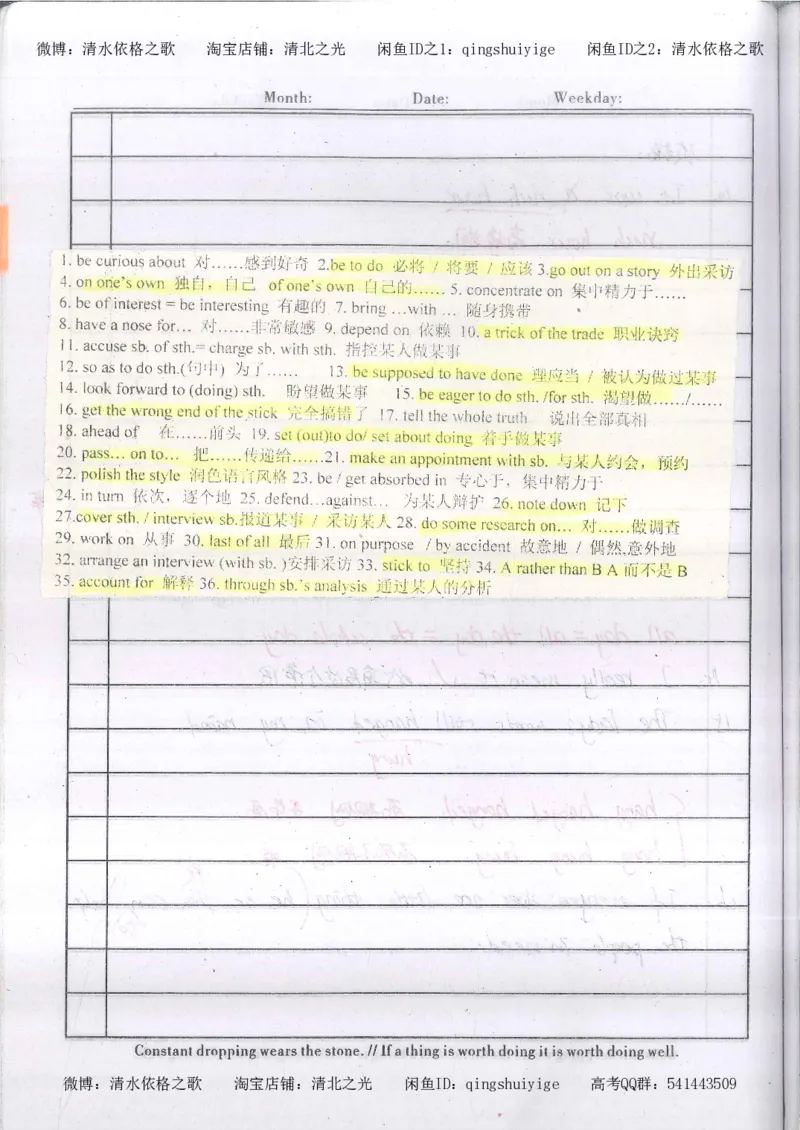 微博：清水依格之歌 淘宝店铺：清北之光 闲鱼ID之1：qingshuiyige 闲鱼ID之2：清水依格之歌
Month: Date: Weekday:
1. be curious about 对……感到好奇 2.be to do 必将 / 将要 / 应该 3.go out on a story 外出采访
4. on one's own 独自，自己 of one's own 自己的…… 5. concentrate on 集中精力于……
6. be of interest = be interesting 有趣的 7. bring ...with ... 随身携带
8. have a nose for... 对……非常敏感 9. depend on 依赖 10. a trick of the trade 职业诀窍
11. accuse sb. of sth.= charge sb. with sth. 指控某人做某事
12. so as to do sth.(句中) 为了…… 13. be supposed to have done 理应当 / 被认为做过某事
14. look forward to (doing) sth. 盼望做某事 15. be eager to do sth. /for sth. 渴望做……/……
16. get the wrong end of the stick 完全搞错了 17. tell the whole truth 说出全部真相
18. ahead of 在……前头 19. set (out)to do/ set about doing 着手做某事
20. pass... on to... 把……传递给……21. make an appointment with sb. 与某人约会，预约
22. polish the style 润色语言风格 23. be / get absorbed in 专心于，集中精力于
24. in turn 依次，逐个地 25. defend...against... 为某人辩护 26. note down 记下
27.cover sth. / interview sb.报道某事 / 采访某人 28. do some research on... 对……做调查
29. work on 从事 30. last of all 最后 31. on purpose / by accident 故意地 / 偶然,意外地
32. arrange an interview (with sb. )安排采访 33. stick to 坚持 34. A rather than B A 而不是 B
35. account for 解释 36. through sb.'s analysis 通过某人的分析
Constant dropping wears the stone. // If a thing is worth doing it is worth doing well.
微博：清水依格之歌 淘宝店铺：清北之光 闲鱼ID：qingshuiyige 高考QQ群：541443509